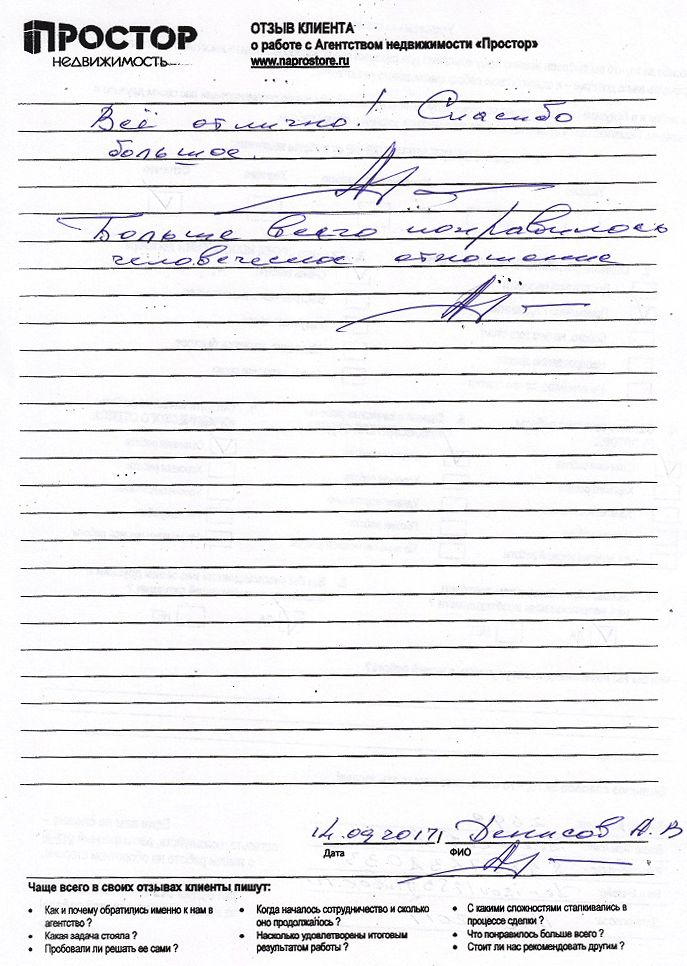 ПРОСТОР
НЕДВИЖИМОСТЬ
ОТЗЫВ КЛИЕНТА
о работе с Агентством недвижимости «Простор»
www.naprostore.ru
Всё отлично! Спасибо
большое.
Больше всего понравилось
человеческое отношение
14.09.2017 Денисов А.В
Дата ФИО
Чаще всего в своих отзывах клиенты пишут:
• Как и почему обратились именно к нам в агентство ?
• Какая задача стояла ?
• Пробовали ли решать ее сами ?
• Когда началось сотрудничество и сколько оно продолжалось ?
• Насколько удовлетворены итоговым результатом работы ?
• С какими сложностями сталкивались в процессе сделки ?
• Что понравилось больше всего ?
• Стоит ли нас рекомендовать другим ?